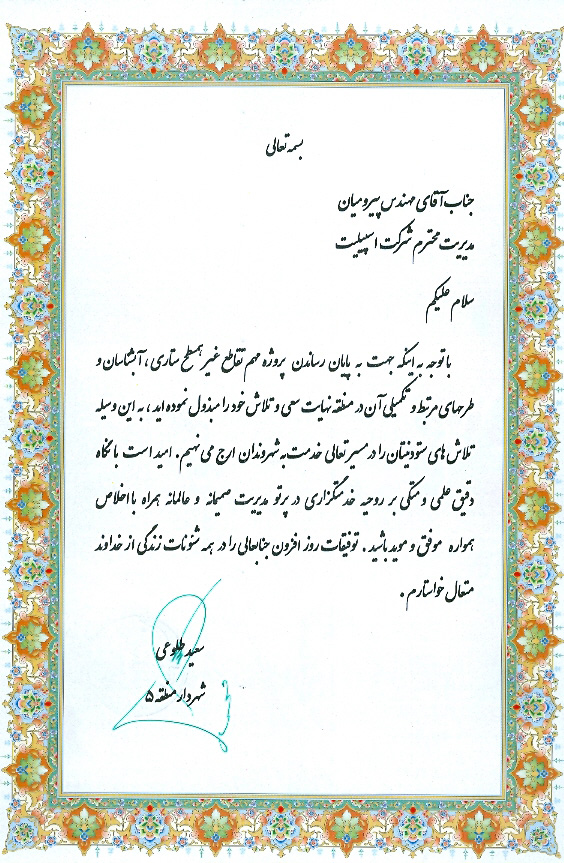 بسمه تعالی
جناب آقای مهندس پیرومیان
مدیریت محترم شرکت اسپیلیت
سلام علیکم
باتوجه به اینکه جهت به پایان رساندن پروژه مهم تقاطع غیر همسطح ستاری ، آبشناسان و
طرحهای مرتبط و تکمیلی آن در منطقه نهایت سعی و تلاش خود را مبذول نموده اید ، به این وسیله
تلاش های ستودنیتان را در مسیر تعالی خدمت به شهروندان ارج می نهیم . امید است با نگاه
دقیق علمی و متکی بر روحیه خدمتگزاری در پرتو مدیریت صمیمانه و عالمانه همراه با اخلاص
همواره موفق و موید باشید . توفیقات روز افزون جنابعالی را در همه شئونات زندگی از خداوند
متعال خواستارم .
سعید طلوعی
شهردار منطقه ۵